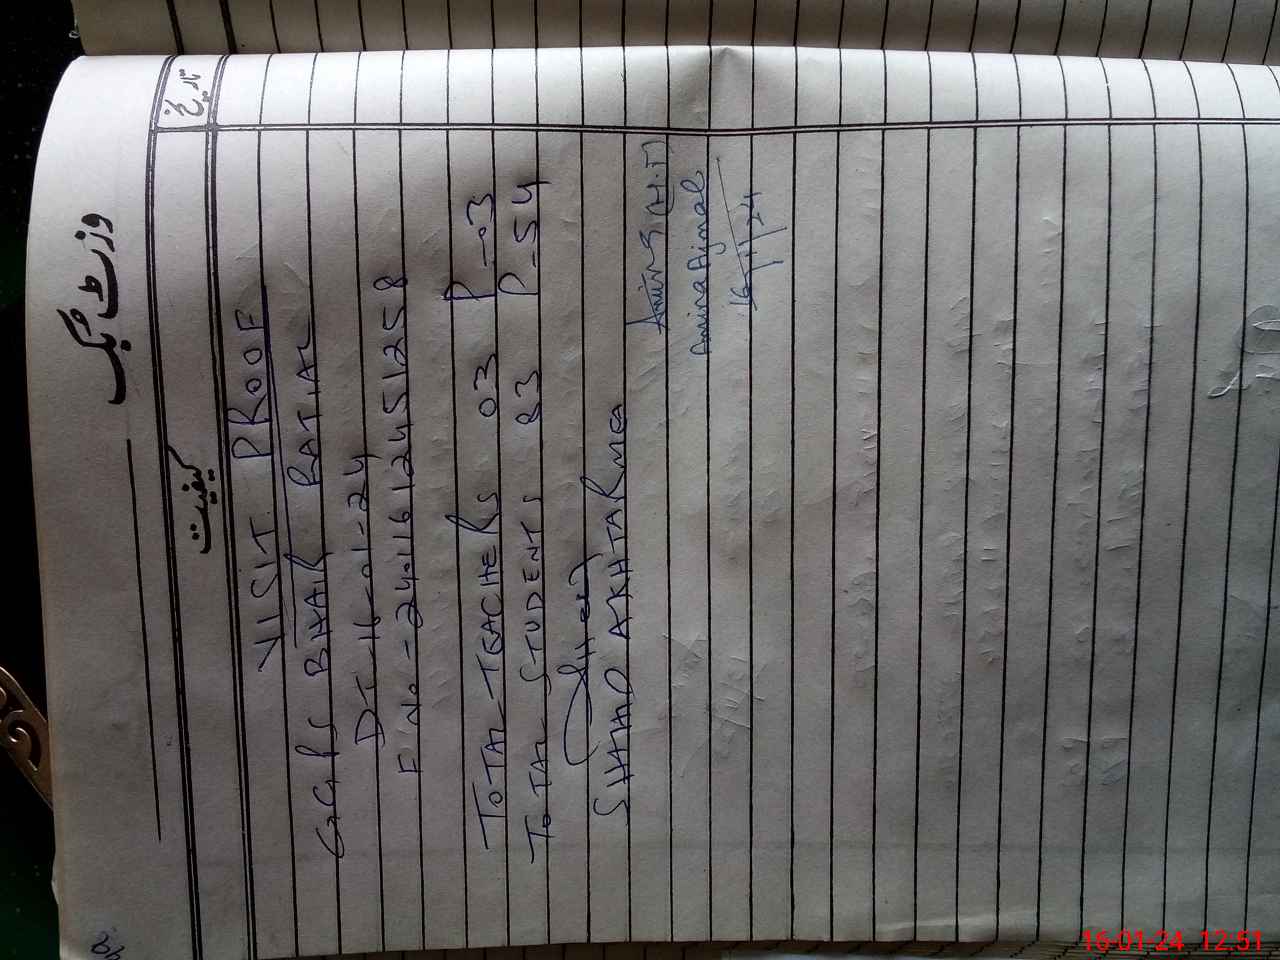 وزٹ بک
تاریخ
کیفیت
VISIT PROOF
GGPS BHAIR RATIAL
DT-16-01-24
F No-24011612451258
TOTAL TEACHERS 03 P-03
TOTAL STUDENTS 83 P-54
SHAHID AKHTAR MEA
Amina (H.T)
Amina Ajmal
16/1/24
16-01-24 12:51